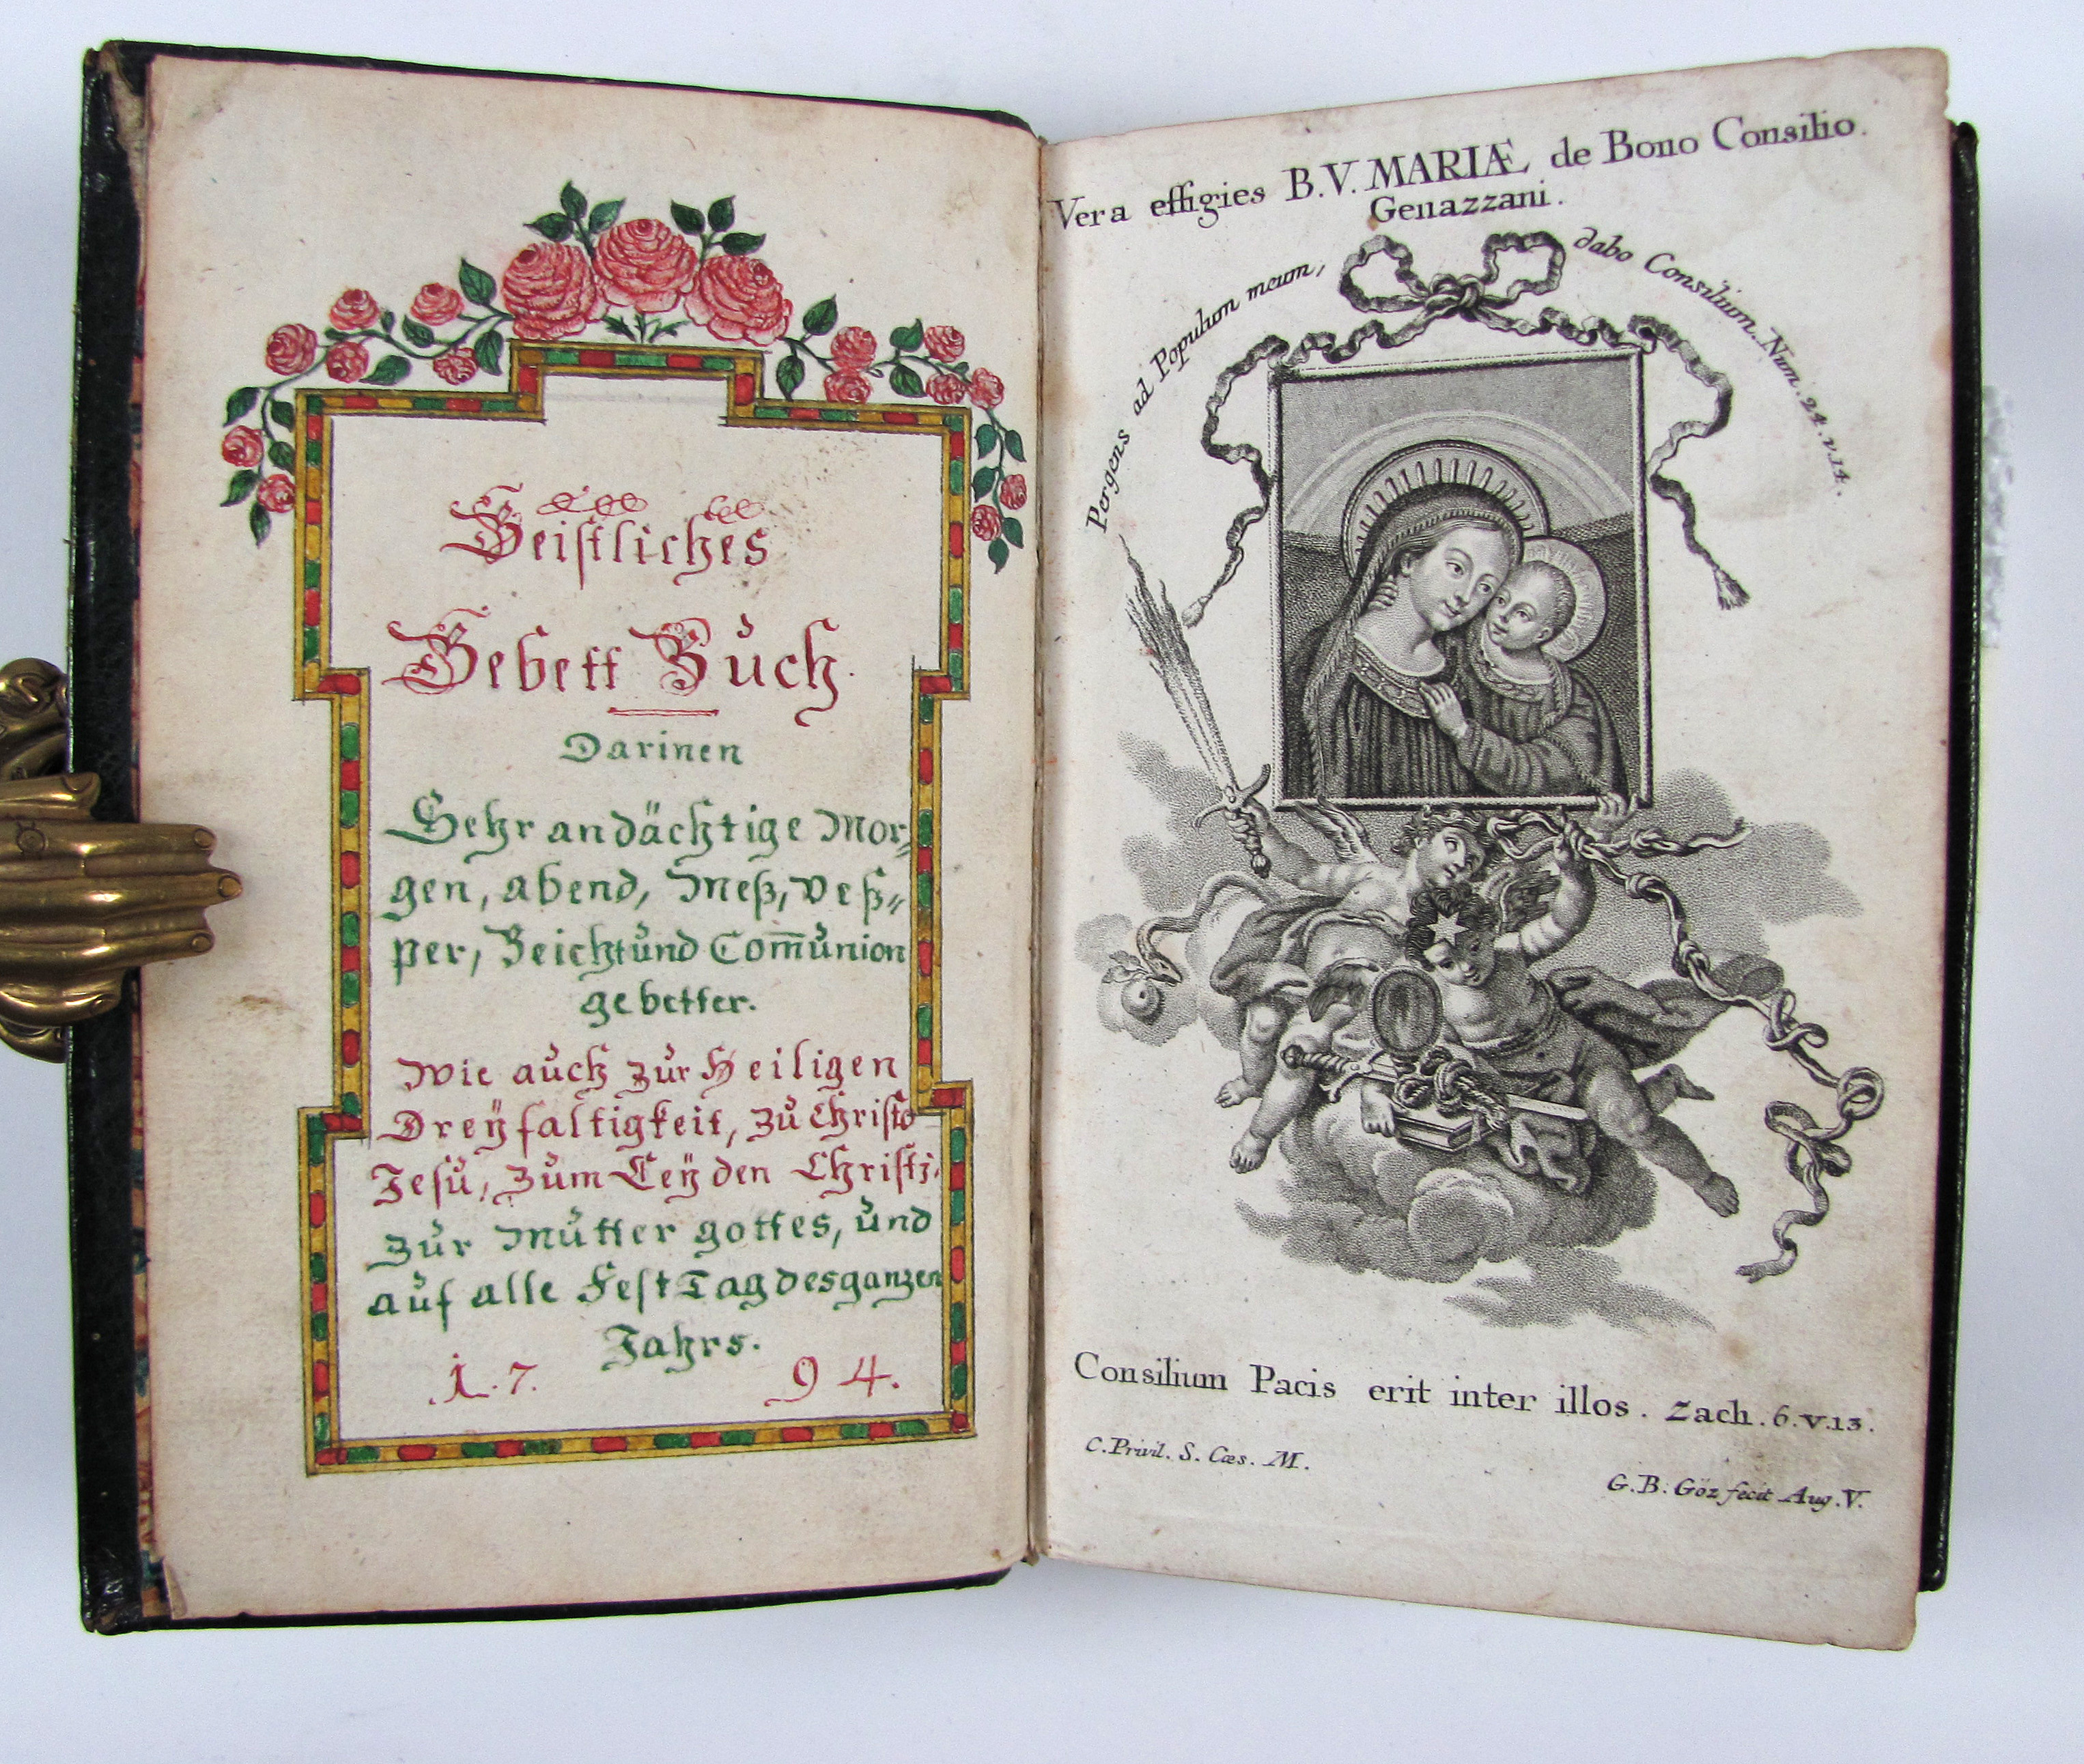 Geistliches
Gebett Bůch.
Darinen
Sehr andächtige Mor„
gen, abend, Meß, veß„
per, Beicht ůnd Com̅ůnion
gebetter.
Wie aůch zůr Heiligen
Dreÿfaltigkeit, zů Christo
Jesů, zům Leÿden Christj,
zůr Můtter gottes, ůnd
aůf alle Fest Tag des ganzen
Jahrs.
1. 7. 9 4.
Vera effigies B.V. MARIÆ de Bono Consilio.
Genazzani.
Pergens ad Populum meum, dabo Consilium. Num. 24. v. 14.
Consilium Pacis erit inter illos. Zach. 6. v. 13.
C. Privil. S. Cæs. M.
G. B. Göz fecit Aug. V.